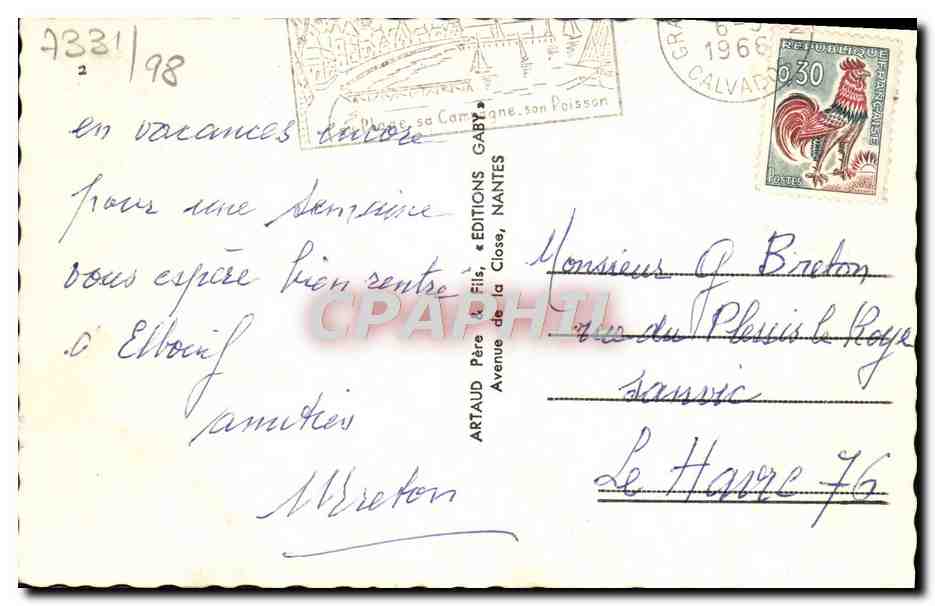 7331/98
2
Plage, sa Campagne, son Poisson
GRA
6-
1966
CALVADOS
REPUBLIQUE FRANÇAISE
0,30
POSTES
en vacances encore
pour une semaine
vous espère bien rentré
à Elboeuf
amitiés
MBreton
ARTAUD Père & Fils, « EDITIONS GABY»
Avenue de la Close, NANTES
CPAPHIL
Monsieur G Breton
rue du Plessis le Roye
Sanvic
Le Havre 76